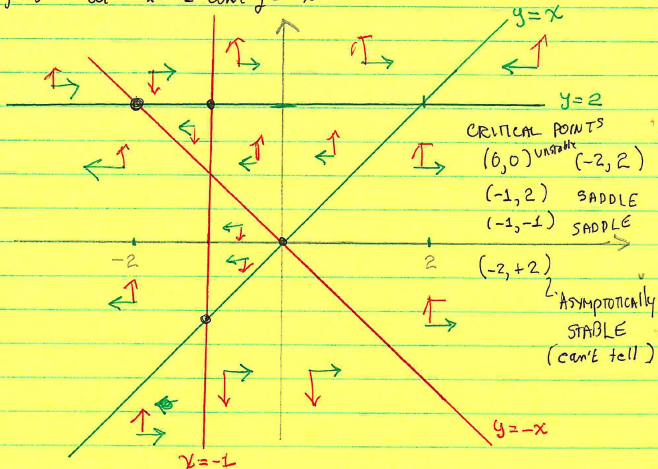 y=x
y=2
CRITICAL POINTS
(0,0) unstable (-2,2)
(-1,2) SADDLE
(-1,-1) SADDLE
-2 2
(-2,+2)
ASYMPTOTICALLY
STABLE
(can't tell)
y=-x
x=-1